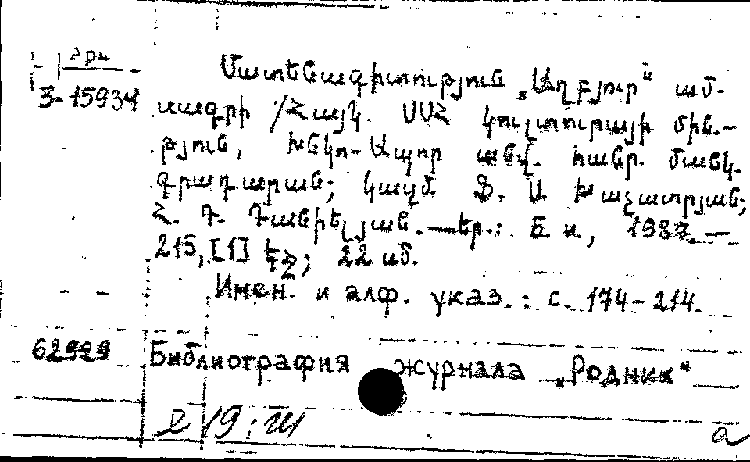 Մատենագիտություն „Աղբյուր“ ամ-
3-15934 սագրի /Հայկ. ՍՍՀ կուլտուրայի մին.-
թյուն, Խնկո-Ապոր անվ. հանր. մանկ.
գրադարան; կազմ. Ֆ. Ա. Խաչատրյան,
Հ. Դ. Դանիելյան.—Եր.: Բ. և., 1987.—
215, [1] էջ; 22 սմ.
Имен. и алф. указ.: с. 174-214.
62929 Библиография журнала „Родник“